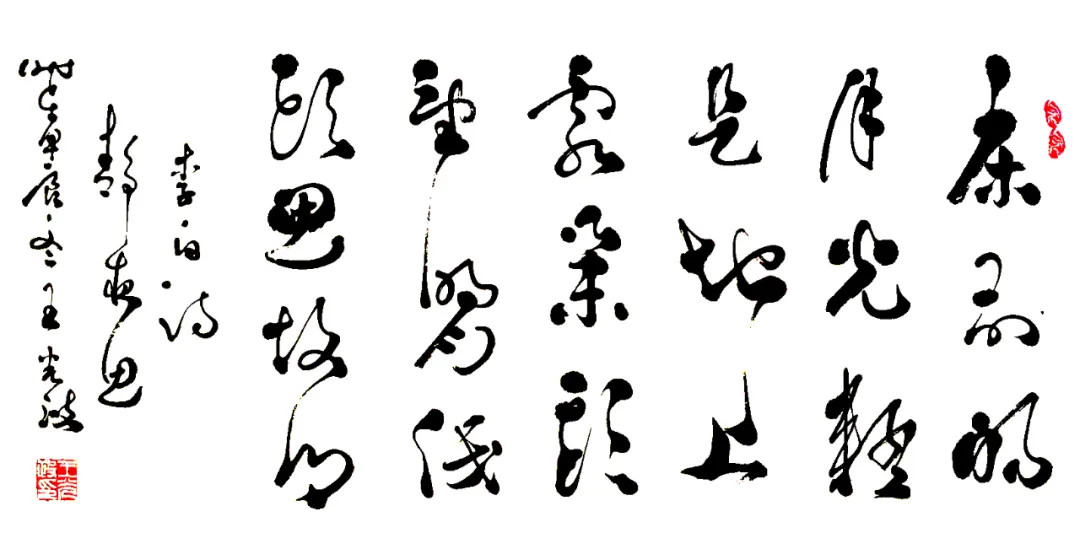 床前明
月光疑
是地上
霜舉頭
望明月低
頭思故鄉
李白詩
靜夜思
甲辰冬王光